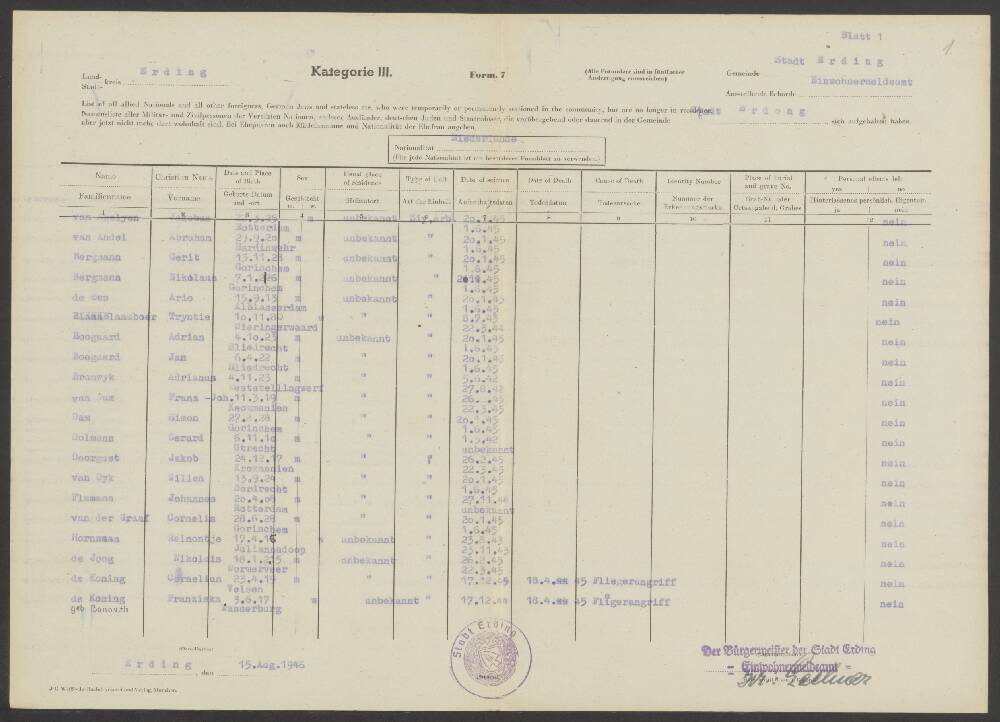 Blatt 1
1.
Land-
Stadt- kreis Erding
Kategorie III.
Form. 7
(Alle Formulare sind in fünffacher
Ausfertigung einzureichen)
Gemeinde Stadt Erding
Einwohnermeldeamt
Ausstellende Behörde
List of all allied Nationals and all other foreigners, German Jews and stateless etc. who were temporarily or permanently stationed in the community, but are no longer in residence.
Personenliste aller Militär- und Zivilpersonen der Vereinten Nationen, anderer Ausländer, deutschen Juden und Staatenloser, die vorübergehend oder dauernd in der Gemeinde Stadt Erdong sich aufgehalten haben,
aber jetzt nicht mehr dort wohnhaft sind. Bei Ehepaaren auch Mädchenname und Nationalität der Ehefrau angeben.
Nationalität Niederlande
(Für jede Nationalität ist ein besonderes Formblatt zu verwenden.)
Name Christian Name Date and Place of Birth Sex Usual place of residence Type of Unit Date of seizure Date of Death Cause of Death Identity Number Place of burial and grave No. Personal effects left yes no
Familienname Vorname Geburts-Datum und -ort Geschlecht m. w. Heimatort Art der Einheit Aufenthaltsdaten Todesdatum Todesursache Nummer der Erkennungsmarke Grab-Nr. oder Ortsangabe d. Grabes Hinterlassenes persönlich. Eigentum ja nein
1 2 3 4 5 6 7 8 9 10 11 12
van Jakobus 25 m unbekannt Ziv.arb. 20.1.45 nein
Rotterdam 1.6.45
van Andel Abraham 29.9.20 m unbekannt " 20.1.45 nein
Hardinxehr 1.6.45
Bergmann Gerit 13.11.23 m unbekannt " 20.1.45 nein
Gorinchem 1.6.45
Bergmann Nikolaus 7.1.26 m unbekannt " 20.1.45 nein
Gorinchem 1.6.45
de Arie 15.9.13 m unbekannt " 20.1.45 nein
Alblasserdam 1.6.45
Tryntie 10.11.80 w " 8.9.43 nein
Wieringerwaard 22.3.44
Boogaard Adrian 4.10.23 m unbekannt " 20.1.45 nein
Sliedrecht 1.6.45
Boogaard Jan 6.4.22 m " " 20.1.45 nein
Sliedrecht 1.6.45
Bronwyk Adrianus 4.11.23 m " " 5.6.42 nein
Weststellingwerf
van Frans -Joh. 11.3.19 m " " nein
22.3.45
Dam Simon 27.4.28 m " " 20.1.45 nein
Gorinchem 1.6.45
Dolmans Gerard 6.11.10 m " " 1.5.42 nein
Utrecht unbekannt
Doorgast Jakob 24.12.17 m " " 26.2.45 nein
Krommenien 22.3.45
van Dyk Willen 13.9.24 m " " 20.1.45 nein
Dordrecht 1.6.45
Flamann Johannes 20.4.09 m " " 27.11.44 nein
Rotterdam unbekannt
van der Graaf Cornelis 28.6.28 m " " 20.1.45 nein
Gorinchem 1.6.45
Hornsman Reinontje 17.4.16 w unbekannt " 23.8.43 nein
Juliannadoop 23.11.43
de Jong Nikolais 18.1.15 m unbekannt " 26.2.45 nein
Wormerveer 22.3.45
de Koning Cornelius 23.4.19 m " " 17.12.45 18.4. 45 Fliegerangriff nein
Velsen
de Koning Franziska 3.6.17 w unbekannt " 17.12.44 18.4. 45 Fligerangriff nein
geb. Wasserburg
Erding, den 15.Aug.1946
Stadt Erding
Der Bürgermeister der Stadt Erding
- Einwohnermeldeamt -